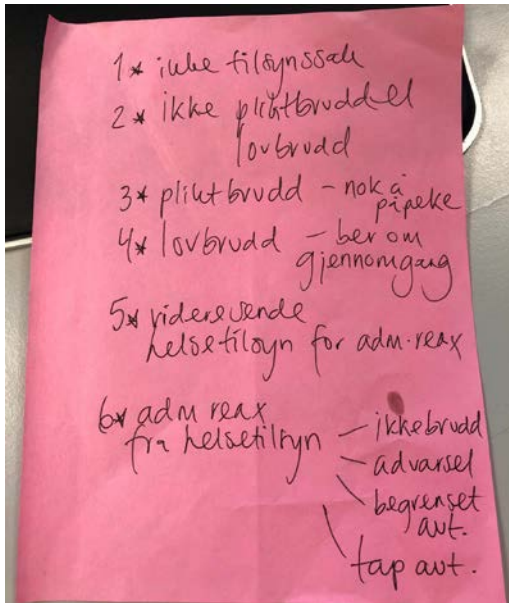 1* ikke tilsynssak
2* ikke pliktbrudd el
lovbrudd
3* pliktbrudd - nok å
påpeke
4* lovbrudd - ber om
gjennomgang
5* videresende
helsetilsyn for adm.reax
6* adm reax
fra helsetilsyn - ikkebrudd
- advarsel
\ begrenset
aut.
\ tap aut.